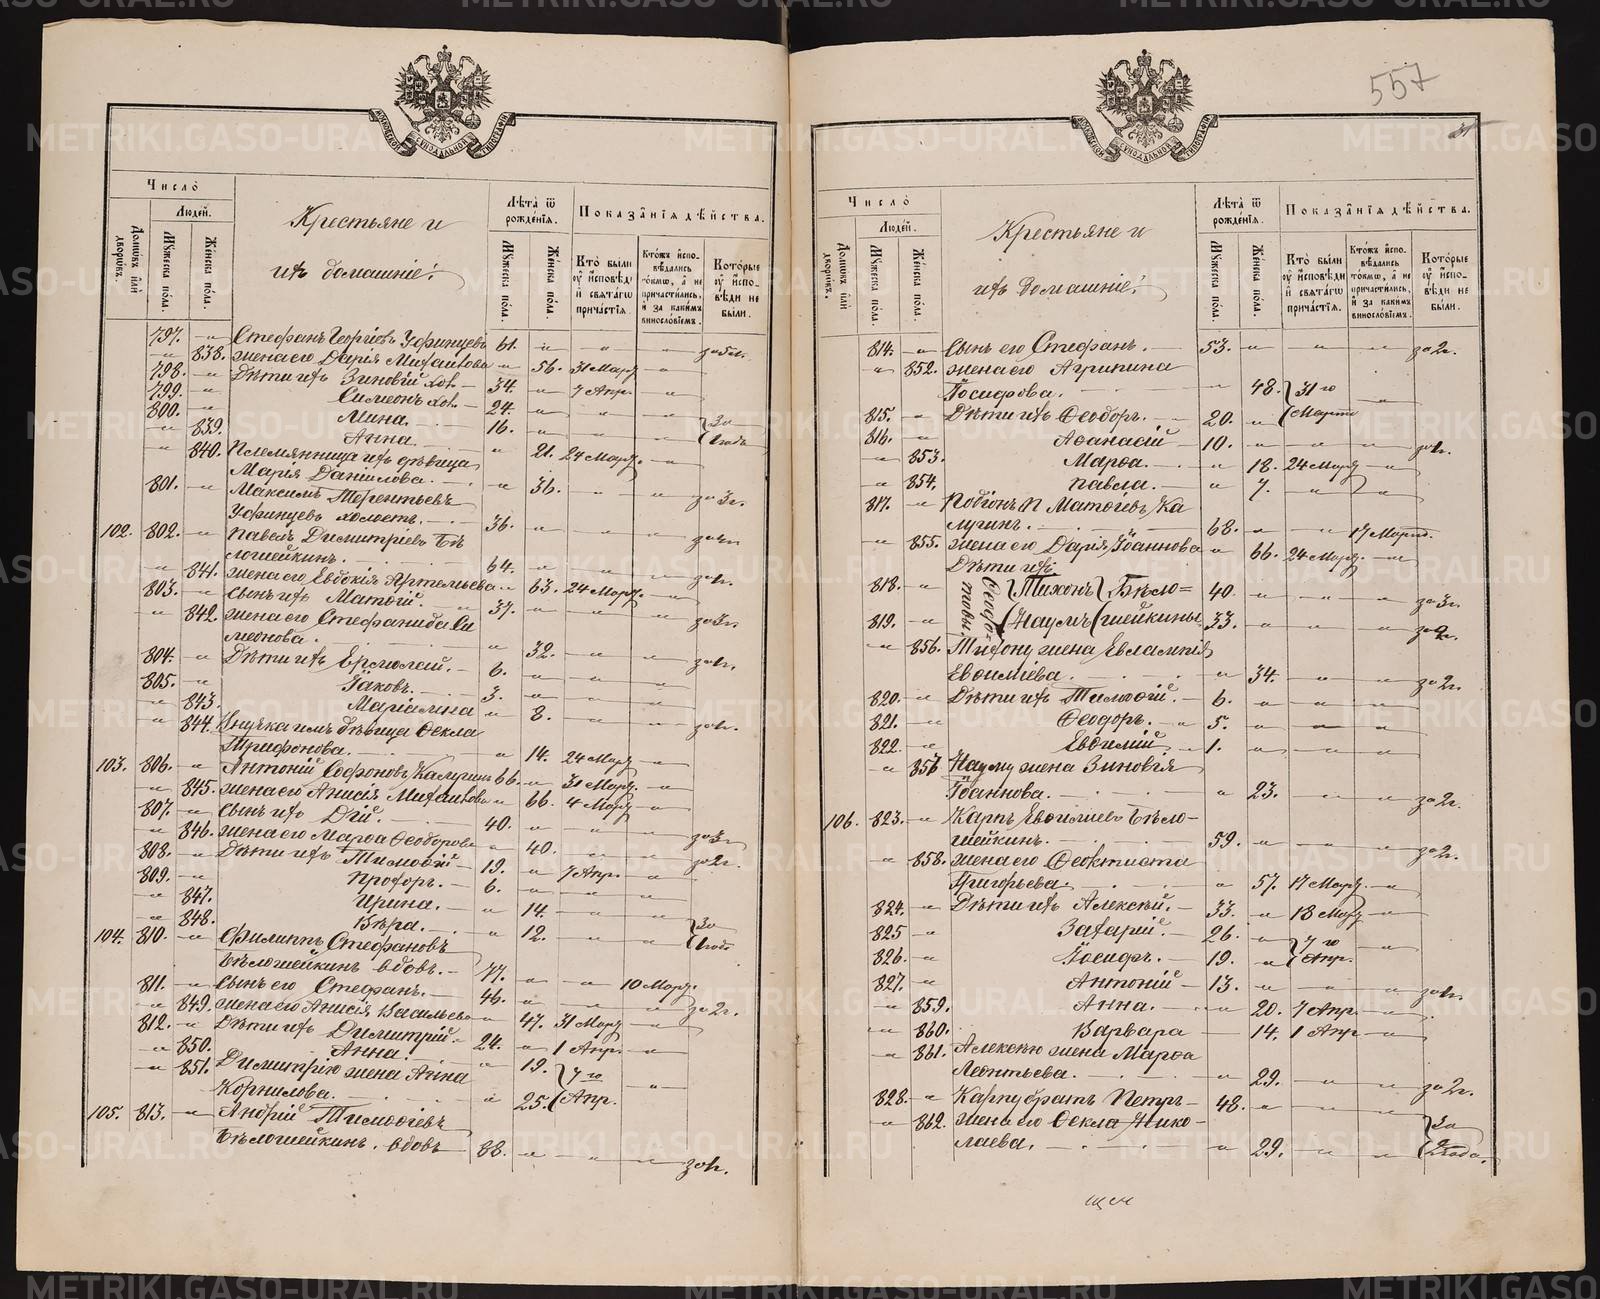 557
Число̀
Людей.
Домѡвъ и҆лѝ дворѡвъ.
Мꙋжеска по́ла.
Же́нска по́ла.
Крестьяне и
ихъ домашніе:
Лѣ̑та ѿ рождє́нїѧ.
Мꙋжеска по́ла.
Же́нска по́ла.
Показа̑нїѧ дѣ́йства.
Кто̀ бы́ли ᲂу҆ и҆́сповѣди и҆ ст҃а́гѡ прича́стїѧ.
Кто́жъ и҆спо-вѣ́дались то́кмѡ, а҆ не причасти́лись, и҆ за каки́мъ винослѡ́вїемъ.
Кото́рые ᲂу҆ и҆спо-вѣ́ди не бы́ли.
797. Стефанъ Георгіевъ Уфинцевъ 61. за 5 л.
838. жена его Дарія Михаилова 56. 31 Март.
798. Дѣти ихъ Зиновій хол. 34. 7 Апр.
799. Симеонъ хол. 24.
800. Мина. 16. За
839. Анна. 21. 24 Март. 1 годъ
840. Племянница ихъ дѣвица
Марія Даніилова. 36.
801. Максимъ Терентьевъ за 3 г.
Уфинцевъ холостъ. 36.
102. 802. Павелъ Димитріевъ Бѣ
лошейкинъ. 64.
841. жена его Евдокія Артемьева 63. 24 Март. за 1 г.
803. сынъ ихъ Матѳій. 37.
842. жена его Стефанида Си за 3 г.
меонова. 32.
804. Дѣти ихъ Ермолай. 6. за 1 г.
805. Іаковъ. 3.
843. Маріамна 8.
844. Внучка имъ дѣвица Ѳекла за 1 г.
Трифонова. 14. 24 Март.
103. 806. Антоній Софоновъ Калугинъ 66. 31 Март.
845. жена его Анисія Михаилова 66. 4 Март.
807. сынъ ихъ Дій. 40.
846. жена его Марѳа Ѳеодорова 40. за 3 г.
808. Дѣти ихъ Тимоѳій 19. 7 Апр. за 2 г.
809. Прохоръ. 6.
847. Ирина. 14.
848. Вѣра. 12. За
104. 810. Филиппъ Стефановъ 1 годъ
Бѣлошейкинъ вдовъ. 77.
811. Сынъ его Стефанъ. 46. 10 Март.
849. жена его Анисія Васильева 47. 31 Март. за 2 г.
812. Дѣти ихъ Димитрій. 24. 1 Апр.
850. Анна. 19.
851. Димитрію жена Анна 7 го
Корнилова. 25. Апр.
105. 813. Андрій Тимоѳіевъ
Бѣлошейкинъ. вдовъ 88. за 1 г.
Число̀
Людей.
Домѡвъ и҆лѝ дворѡвъ.
Мꙋжеска по́ла.
Же́нска по́ла.
Крестьяне и
ихъ домашніе:
Лѣ̑та ѿ рождє́нїѧ.
Мꙋжеска по́ла.
Же́нска по́ла.
Показа̑нїѧ дѣ́йства.
Кто̀ бы́ли ᲂу҆ и҆́сповѣди и҆ свѧта́гѡ прича́стїѧ.
Кто́жъ и҆спо-вѣ́дались то́кмѡ, а҆ не причасти́лись, и҆ за каки́мъ винослѡ́вїемъ.
Кото́рые ᲂу҆ и҆спо-вѣ́ди не бы́ли.
814. Сынъ его Стефанъ. 53. за 2 г.
852. жена его Агрипина
Іосифова. 48. 31 го
815. Дѣти ихъ Ѳеодоръ. 20. Марта
816. Аѳанасій 10. за 1 г.
853. Марѳа. 18. 24 Март.
854. Павла. 7.
817. Родіонъ П Матѳіевъ Ка
лугинъ. 68. 17 Март.
855. жена его Дарія Іоаннова 66. 24 Март.
Дѣти ихъ
818. Ѳеофа- Тихонъ Бѣло= 40. за 3 г.
819. товы. Наумъ шейкины 33. за 2 г.
856. Тихону жена Евлампія
Евѳиміева. 34. за 2 г.
820. Дѣти ихъ Тимоѳій. 6.
821. Ѳеодоръ. 5.
822. Евѳимій 1.
857 Науму жена Зиновія
Іоаннова. 23. за 2 г.
106. 823. Карпъ Евѳиміевъ Бѣло-
шейкинъ. 59. за 2 г.
858. жена его Ѳеоктиста
Григорьева. 57. 17 Март.
824. Дѣти ихъ Алексѣй. 33. 18 Март
825 Захарій. 26. 7 го
826. Іосифъ. 19. Апр.
827. Антоній 13. за 1 г.
859. Анна. 20. 7 Апр.
860. Варвара 14. 1 Апр.
861. Алексѣю жена Марѳа
Леонтьева. 29. за 2 г.
828. Карпу братъ Петръ 48.
862. жена его Ѳекла Нико- За
лаева. 29. 2 года.